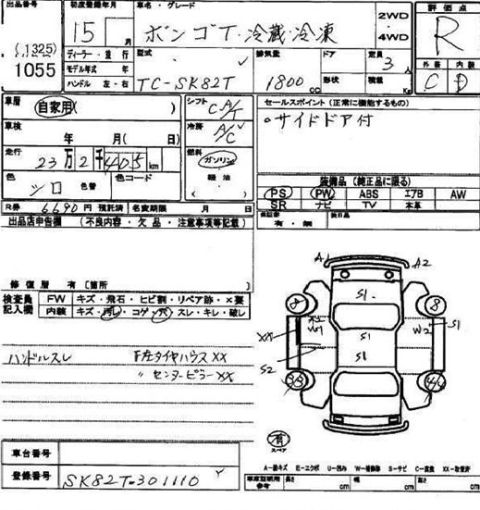 出品番号 初度登録年月 車名・グレード 2WD 4WD 評価点
(1325)
1055
15 月
ボンゴT・冷蔵・冷凍
R
ディーラー・並行 型式 排気量 ドア 定員 3人 外装 内装
モデル年式 年
ハンドル 左・右 TC-SK82T 1800cc 形状 積載 Kg C D
車歴 自家用 ( )
シフト C・A/T
セールスポイント (正常に機能するもの)
車検 年 月( 日)
冷房 A/C
・サイドドア付
走行 23万2千405km
燃料 ガソリン 軽油 ( )
色 シロ 色替 色コード
装備品 (純正品に限る)
PS PW ABS エアB AW
SR ナビ TV 本革
R券 6690円 預託済 名変期限 月 日
有・無
出品店申告欄 (不良内容・欠品・注意事項等記載)
修復歴 有 [箇所
検査員記入欄 FW キズ・飛石・ヒビ割・リペア跡・×要
内装 キズ・汚レ・コゲ・穴・スレ・キレ・破レ
A2 A2
S1
8 8
W1 W2 S1
XX S1
S2 S1
ハンドルスレ F左タイヤハウスXX
〃 センターピラーXX
有
スペア
車台番号
登録番号 SK82T-301110
A-線キズ E-エクボ U-凹み W-補修跡 S-サビ C-腐食 XX-取替済
長さ cm 幅 cm 高さ cm